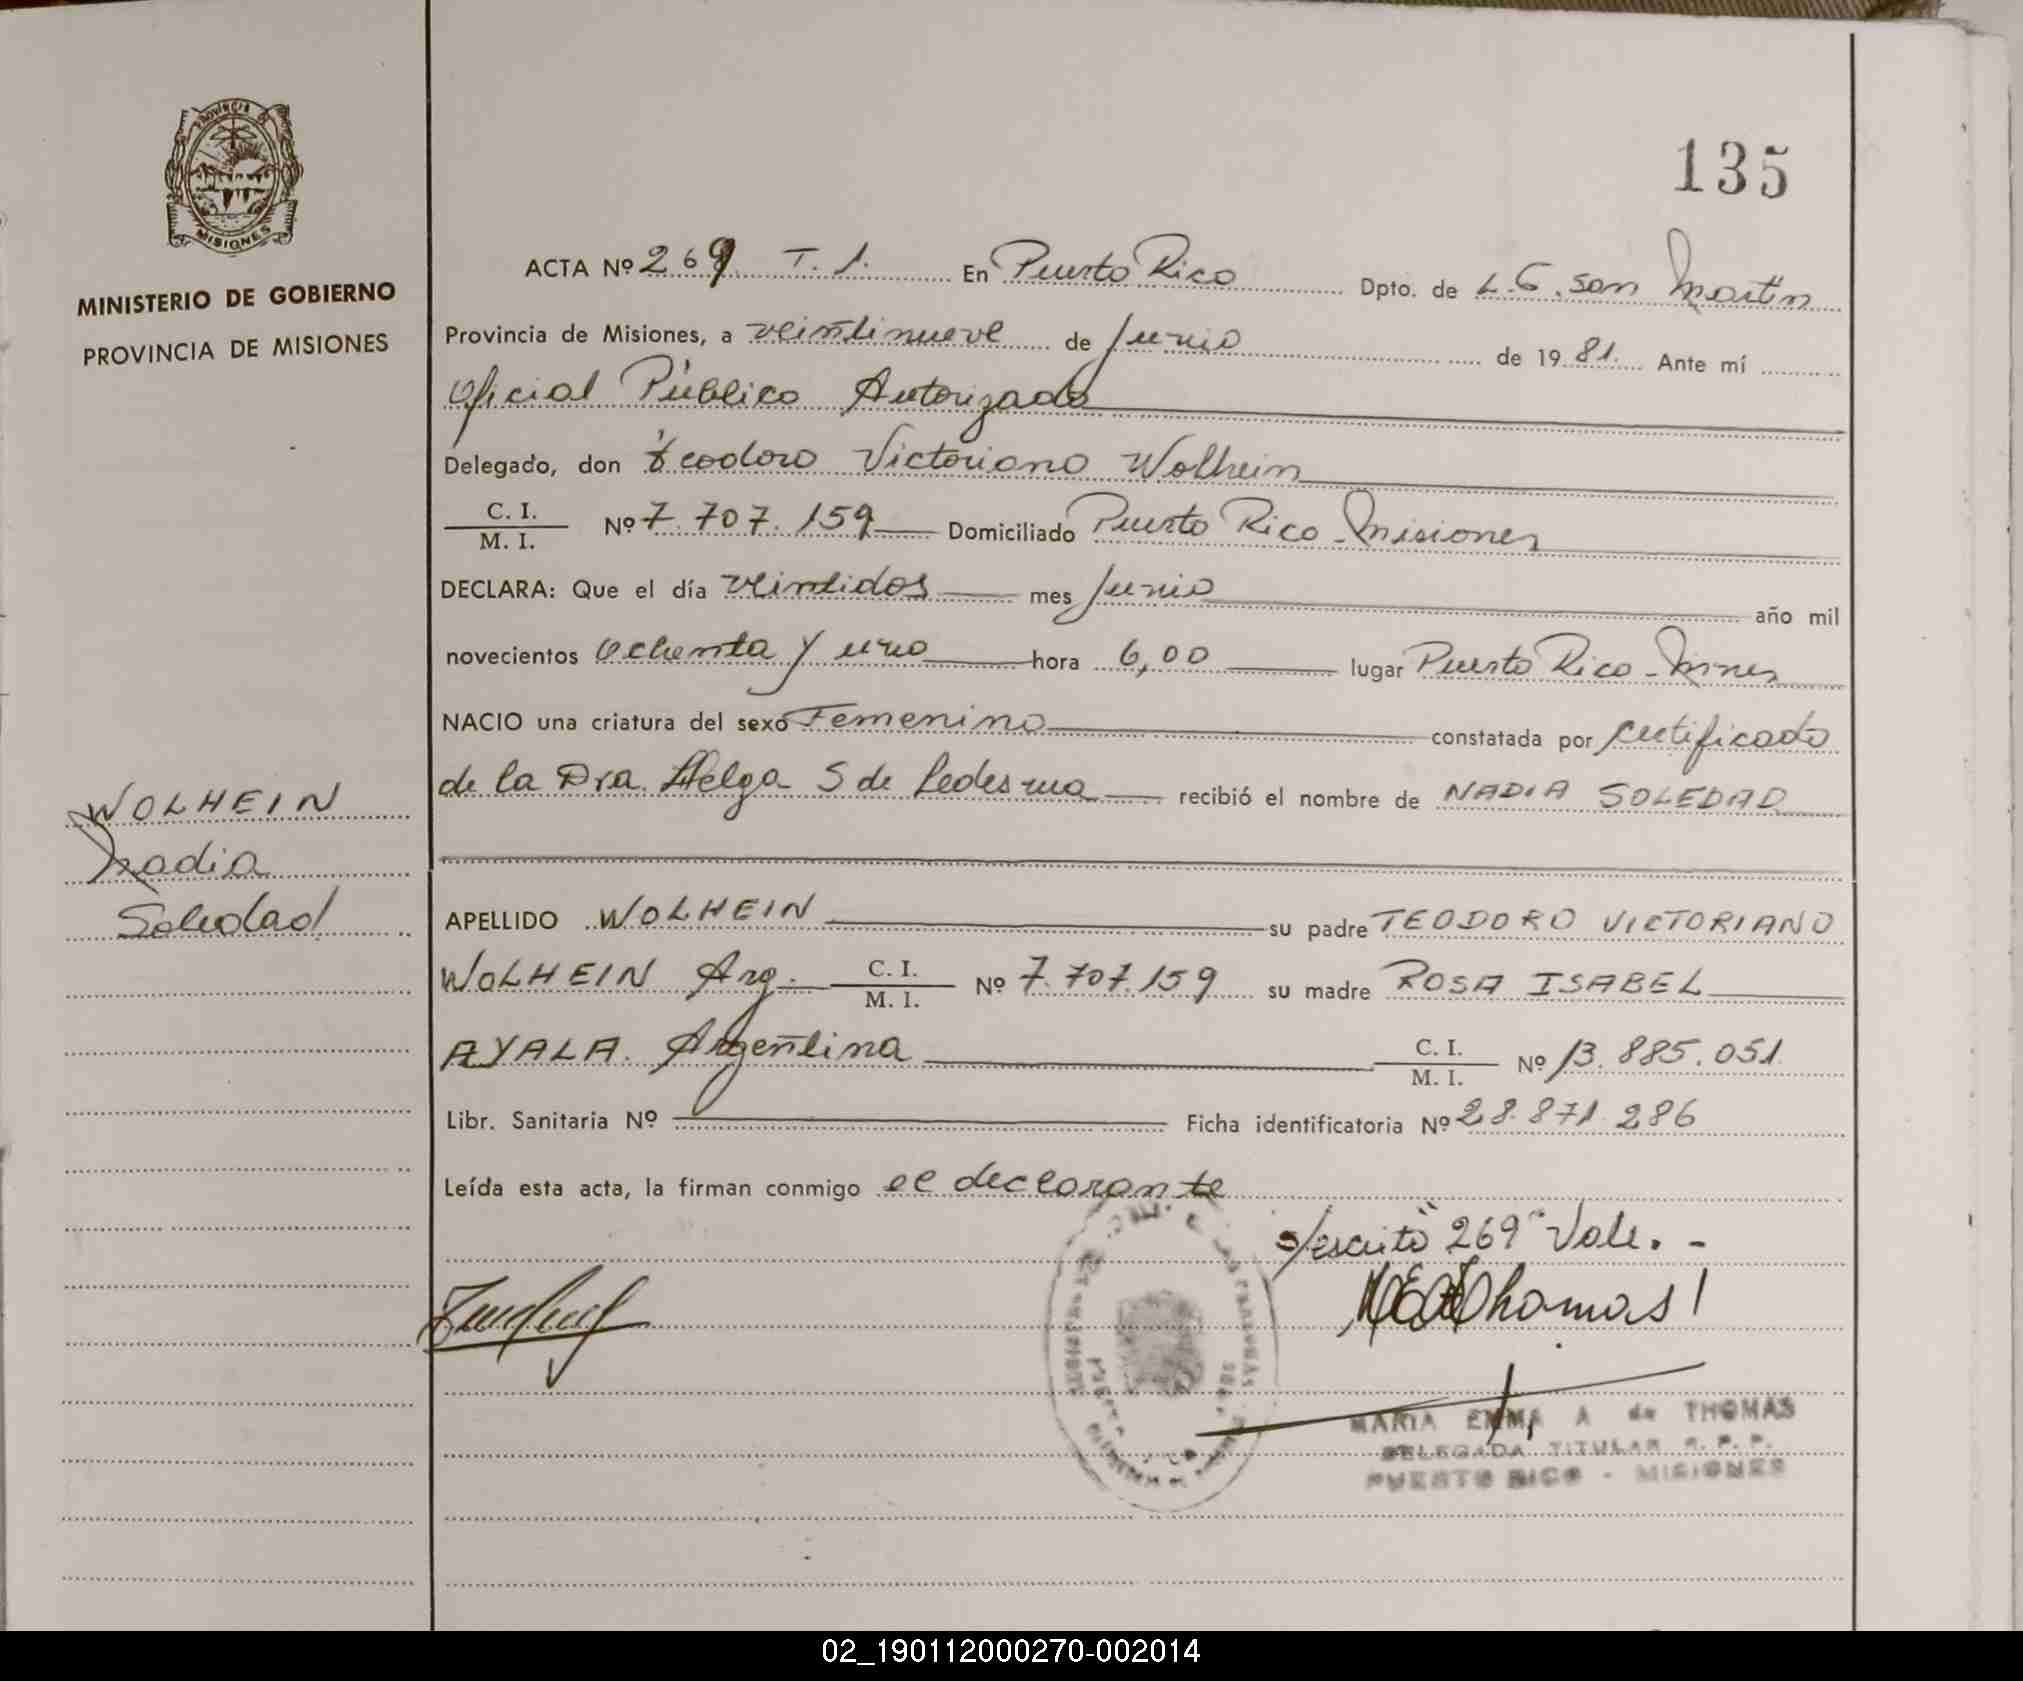 135
PROVINCIA DE
MISIONES
MINISTERIO DE GOBIERNO
PROVINCIA DE MISIONES
ACTA Nº 269 T. 1. En Puerto Rico Dpto. de L. G. San Martín
Provincia de Misiones, a veintinueve de Junio de 1981. Ante mí
Oficial Público Autorizado
Delegado, don Teodoro Victoriano Wolhein
C. I. / M. I. Nº 7.707.159 Domiciliado Puerto Rico - Misiones
DECLARA: Que el día veintidos mes Junio año mil
novecientos ochenta y uno hora 6,00 lugar Puerto Rico - Mnes
NACIO una criatura del sexo Femenino constatada por certificado
de la Dra. Helga S de Ledesma recibió el nombre de NADIA SOLEDAD
WOLHEIN
Nadia
Soledad
APELLIDO WOLHEIN su padre TEODORO VICTORIANO
WOLHEIN Arg. C. I. / M. I. Nº 7.707.159 su madre ROSA ISABEL
AYALA. Argentina C. I. / M. I. Nº 13.885.051
Libr. Sanitaria Nº Ficha identificatoria Nº 28.871.286
Leída esta acta, la firman conmigo el declarante
s/escrito "269" Vale. -
Thomas
MARIA EMMA A de THOMAS
DELEGADA TITULAR R. P. P.
PUERTO RICO - MISIONES
02_190112000270-002014